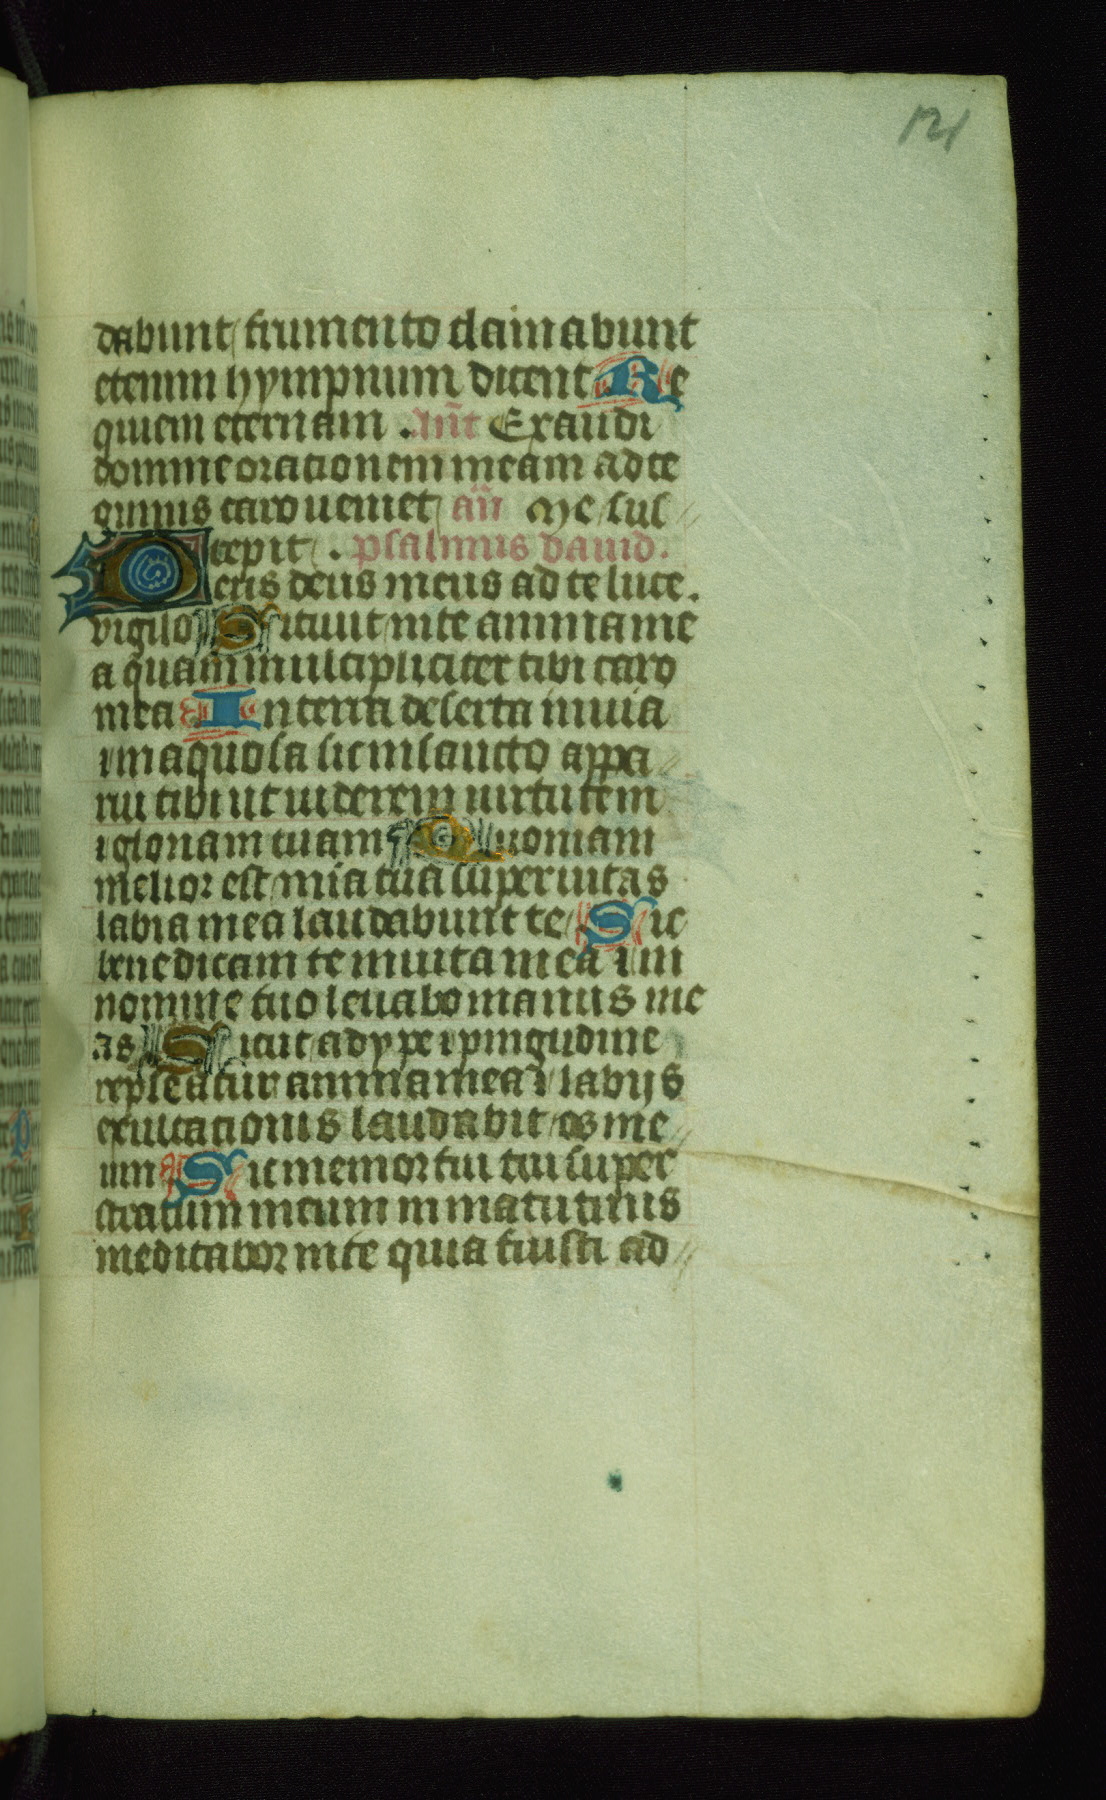 121
dabunt frumento clamabunt
etenim hympnum dicent Re
quiem eternam . Ant Exaudi
domine orationem meam ad te
omnis caro ueniet an Me sus
cepit . psalmus dauid .
Deus deus meus ad te luce .
vigilo Sitiuit in te anima me
a quam multipliciter tibi caro
mea In terra deserta inuia
i inaquosa sic in sancto appa
rui tibi ut uiderem uirtutem
i gloriam tuam Quoniam
melior est mia tua super uitas
labia mea laudabunt te Sic
benedicam te in uita mea i in
nomine tuo leuabo manus me
as Sicut adype i pingudine
repleatur anima mea i labijs
exultationis laudabit os me
um Sic memor fui tui super
stratum meum in matutinis
meditabor in te quia fuisti ad